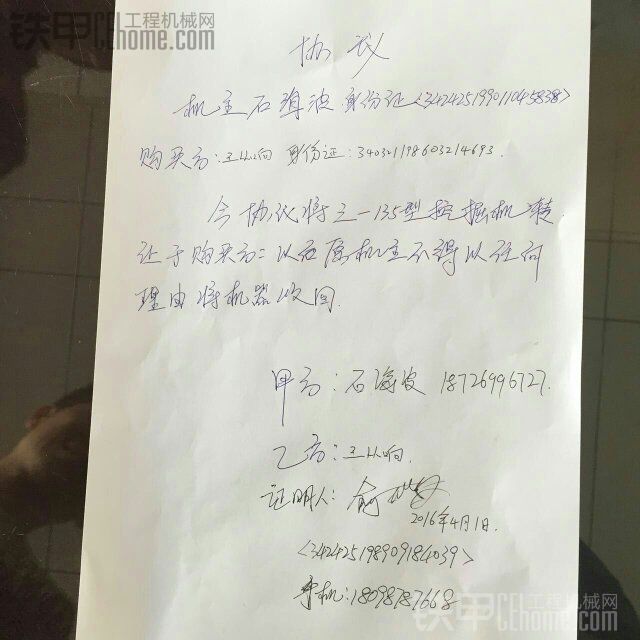 铁甲 工程机械网
CEhome.com
协议
机主石海波 身份证<342425199011045838>
购买方:王从响 身份证:340321198603214693.
今协议将三一135型挖掘机转
让于购买方:以后原机主不得以任何
理由将机器收回.
甲方:石海波 18726996727.
乙方:王从响.
证明人:俞
2016年4月1日.
<342425198909184039>
手机:18098787668
铁甲 工程机械网
CEhome.com